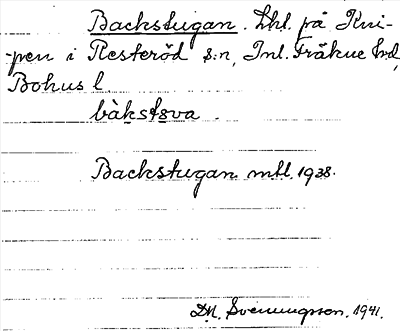 Backstugan. Lht. på Kni-
-pen i Resteröd s:n, Inl. Fräkne hd,
Bohus l.
bàkstsva.
Backstugan mtl. 1938.
D.N. Svenungsson. 1941.